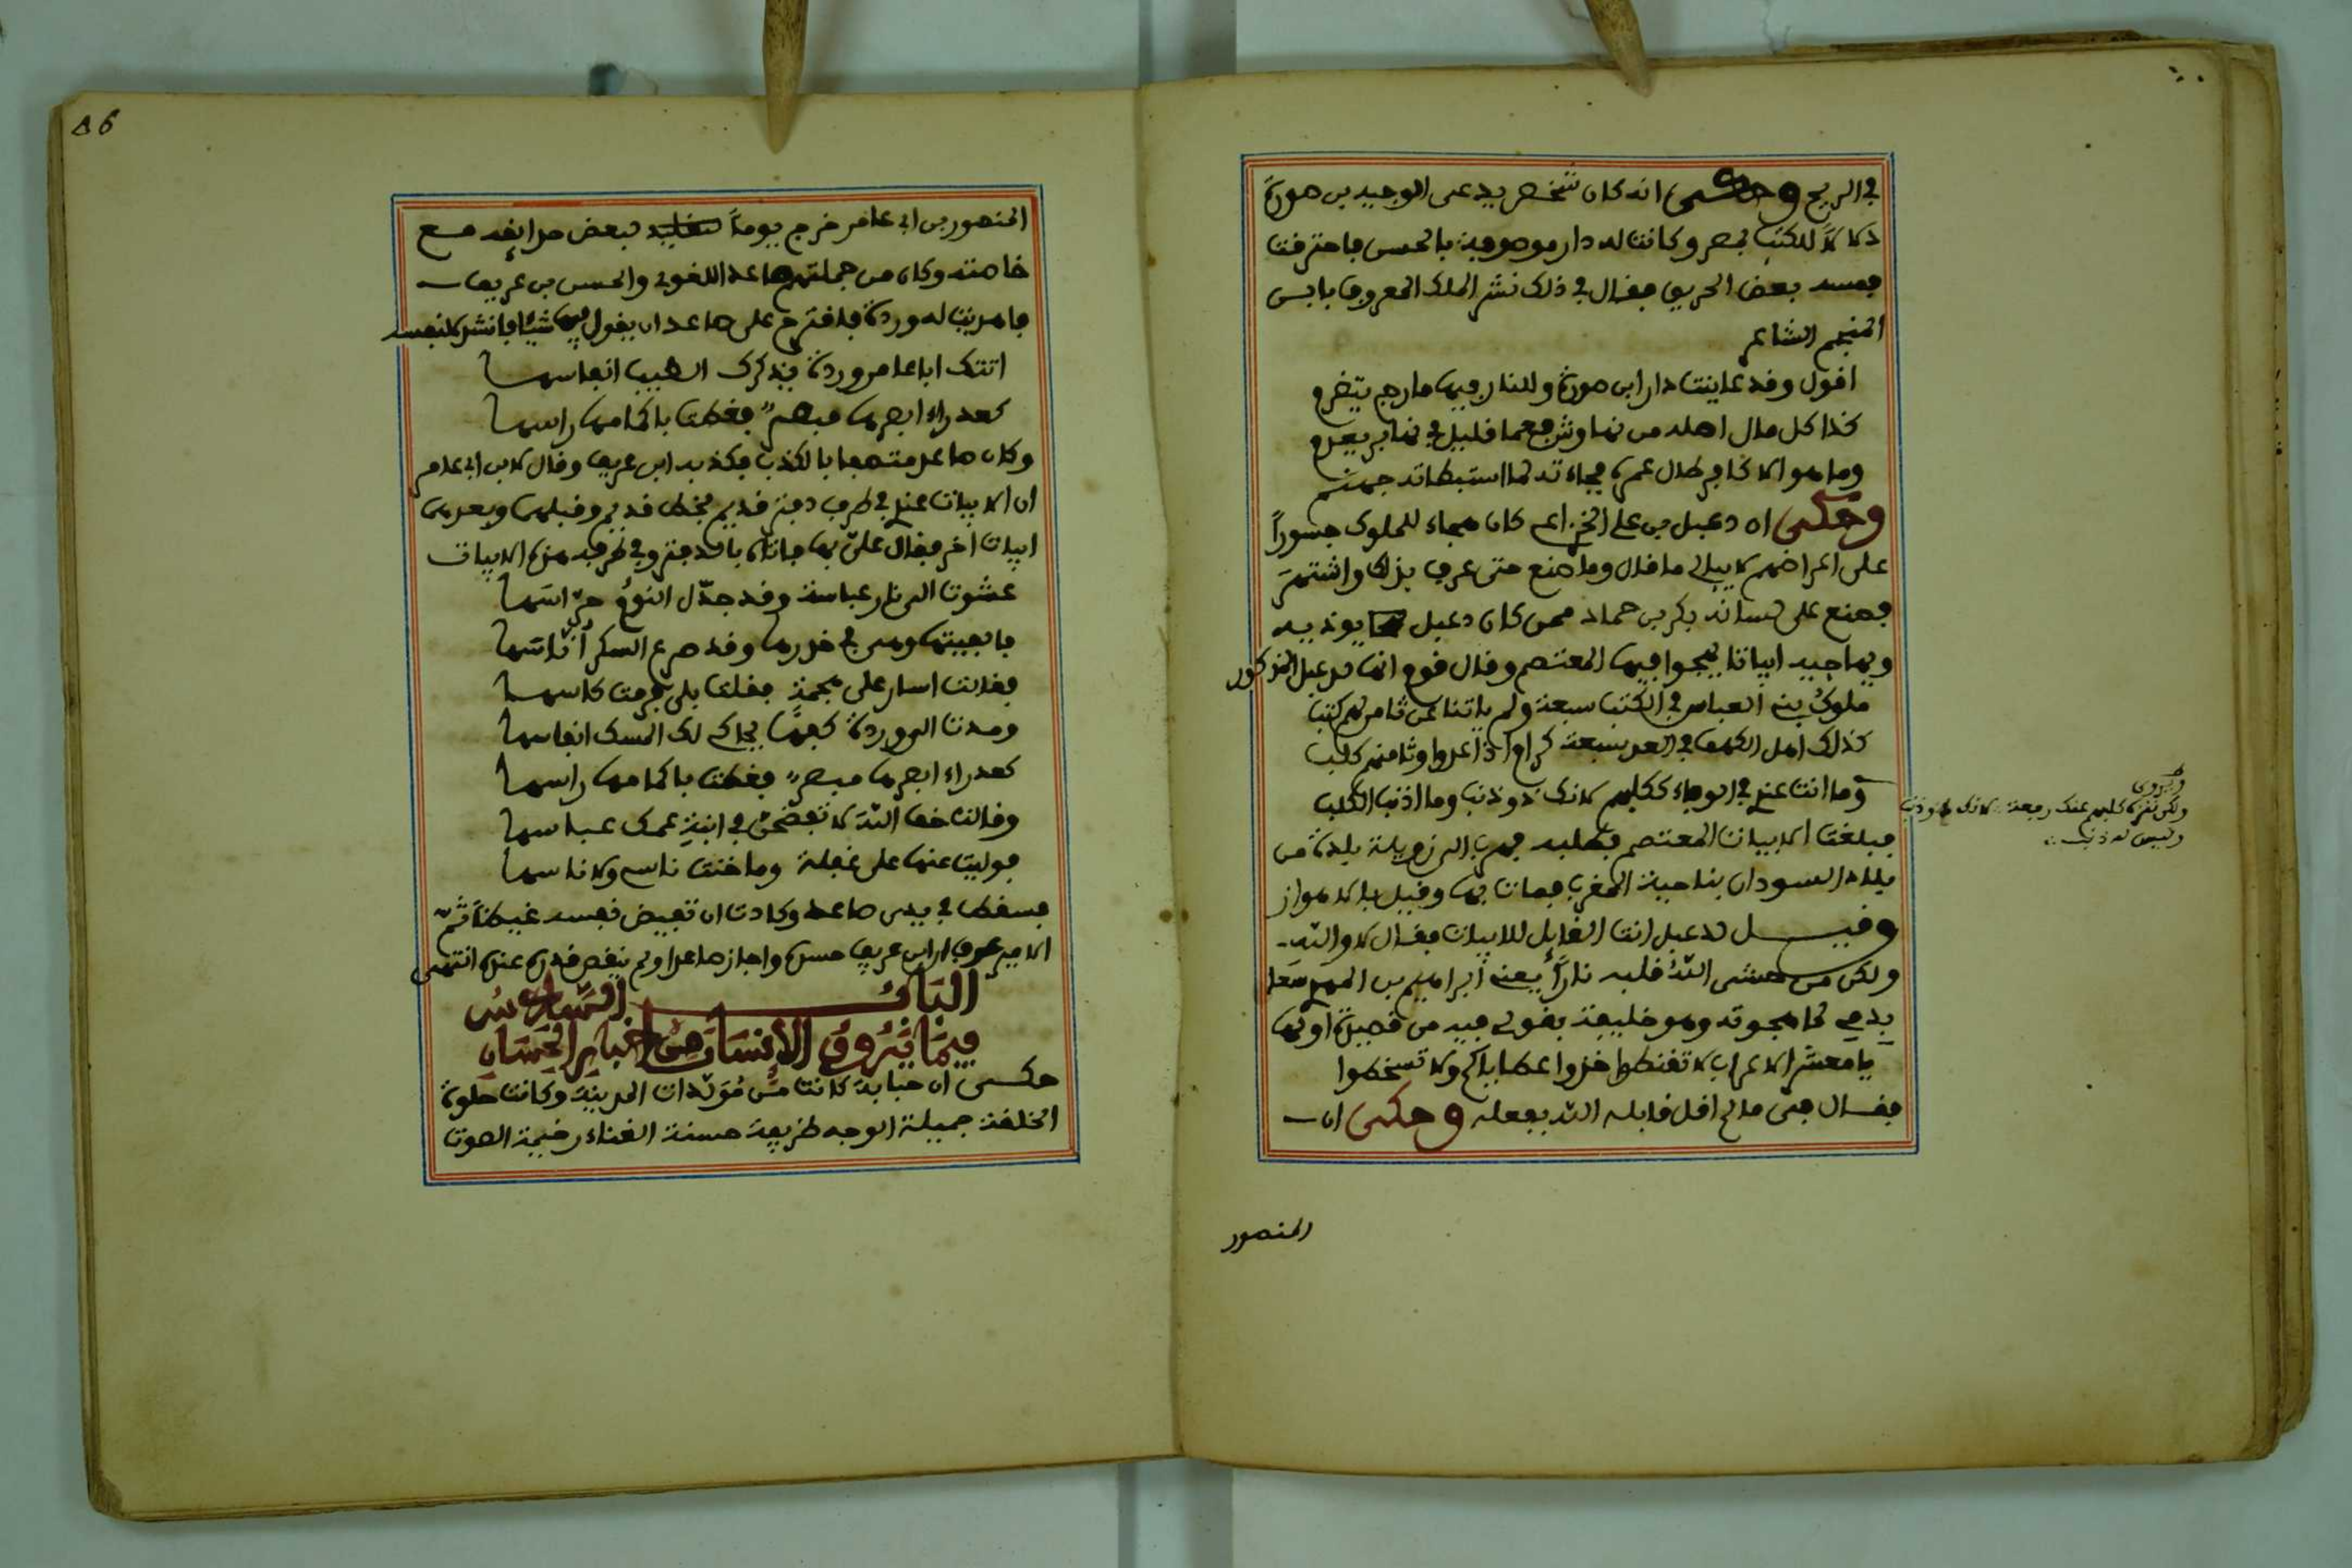 في الريح وحكى انه كان شخص يدعى الوجيه بن صورة
دلالا للكتب بمصر وكانت له دار موصوفة بالحسن فاحترفت
بعض الحريق فقال في ذلك نشر الملك المعروف بابن
المنجم الشاعر
اقول وقد عاينت دار ابن صورة وللنار فيها مارج يتضرم
كذا كل مال اصله من نهاوش فعما قليل في نهابر يعدم
وما هو الا كافر طال عمره فجاءته لما استبطاته جهنم
وحكى ان دعبل بن علي الخزاعي كان هجاء للملوك جسوراً
على اعراضهم لا يبالي ما قال وما صنع حتى عرف بذلك واشتهر
فصنع على لسانه بكر بن حماد ممن كان دعبل يوذيه
ويهاجيه ابياتا يهجوا فيها المعتصم وقال قوم انها لدعبل المذكور
ملوك بني العباس في الكتب سبعة ولم ياتنا عن ثامن لهم كتب
كذلك اهل الكهف في العد سبعة كرام اذا عدوا وثامنهم كلب
وما انت عندي في الوفاء ككلبهم لانك ذو ذنب وما اذنب الكلب
فبلغت الابيات المعتصم فطلبه فهرب الى زويلة بلدة من
بلاد السودان بناحية المغرب فمات بها وقيل بالاهواز
وقيل لدعبل انت القايل للابيات فقال لا والله
ولكن من حشى الله قلبه ناراً يعني ابراهيم بن المهدي
بدمي لما هجوته وهو خليفة بقولي فيه من قصيدة اولها
يا معشر الاعراب لا تقنطوا خذوا عطاياكم ولا تسخطوا
فقال عني ما لم اقل قابله الله بفعله وحكى ان
المنصور
ويروى
ولكن نفرة كلبهم عنك رفعة لانك ذو ذنب
وليس له ذنب
86
المنصور بن ابي عامر خرج يوماً لبعض حدائقه مع
خاصته وكان من جملتهم صاعد اللغوي والحسن بن عريف
فاهديت له وردة فاقترح على صاعد ان يقول فيها شيئا فانشد لنفسه
اتتك ابا عامر وردة يذكرك الطيب انفاسها
كعذراء ابصرها مبصر فغطت باكمامها راسها
وكان صاعد متصفا بالكذب فكذبه ابن عريف وقال لابن ابي عامر
ان الابيات عندي في طرف دفتر قديم بخط قديم وقبلهن وبعدهن
ابيات أخر فقال علي بها فاتاه بالدفتر وفي طرفه هذه الابيات
عشوت الى نار عباسة وقد جدّل النوم حراسها
فالفيتها وهي في خدرها وقد صرع السكر أناسها
فقالت اسار على هجعة فقلت بلى فرمت كاسها
ومدت الى وردة كفها يحاكي لك المسك انفاسها
كعذراء ابصرها مبصر فغطت باكمامها راسها
وقالت خف الله لا تفضحن في ابنة عمك عباسها
فوليت عنها على غفلة وما خنت ناسي ولا ناسها
فسقط في يدي صاعد وكادت ان تفيض نفسه غيظاً ثم
الامير عرف ابن عريف حسده واجاز صاعدا ولم ينقص قدره عنده انتهى
الباب السادس
فيما يروق الانسان من اخبار الحسان
حكى ان حبابة كانت من مولدات المدينة وكانت حلوة
الخلقة جميلة الوجه ظريفة حسنة الغناء رخيمة الصوت